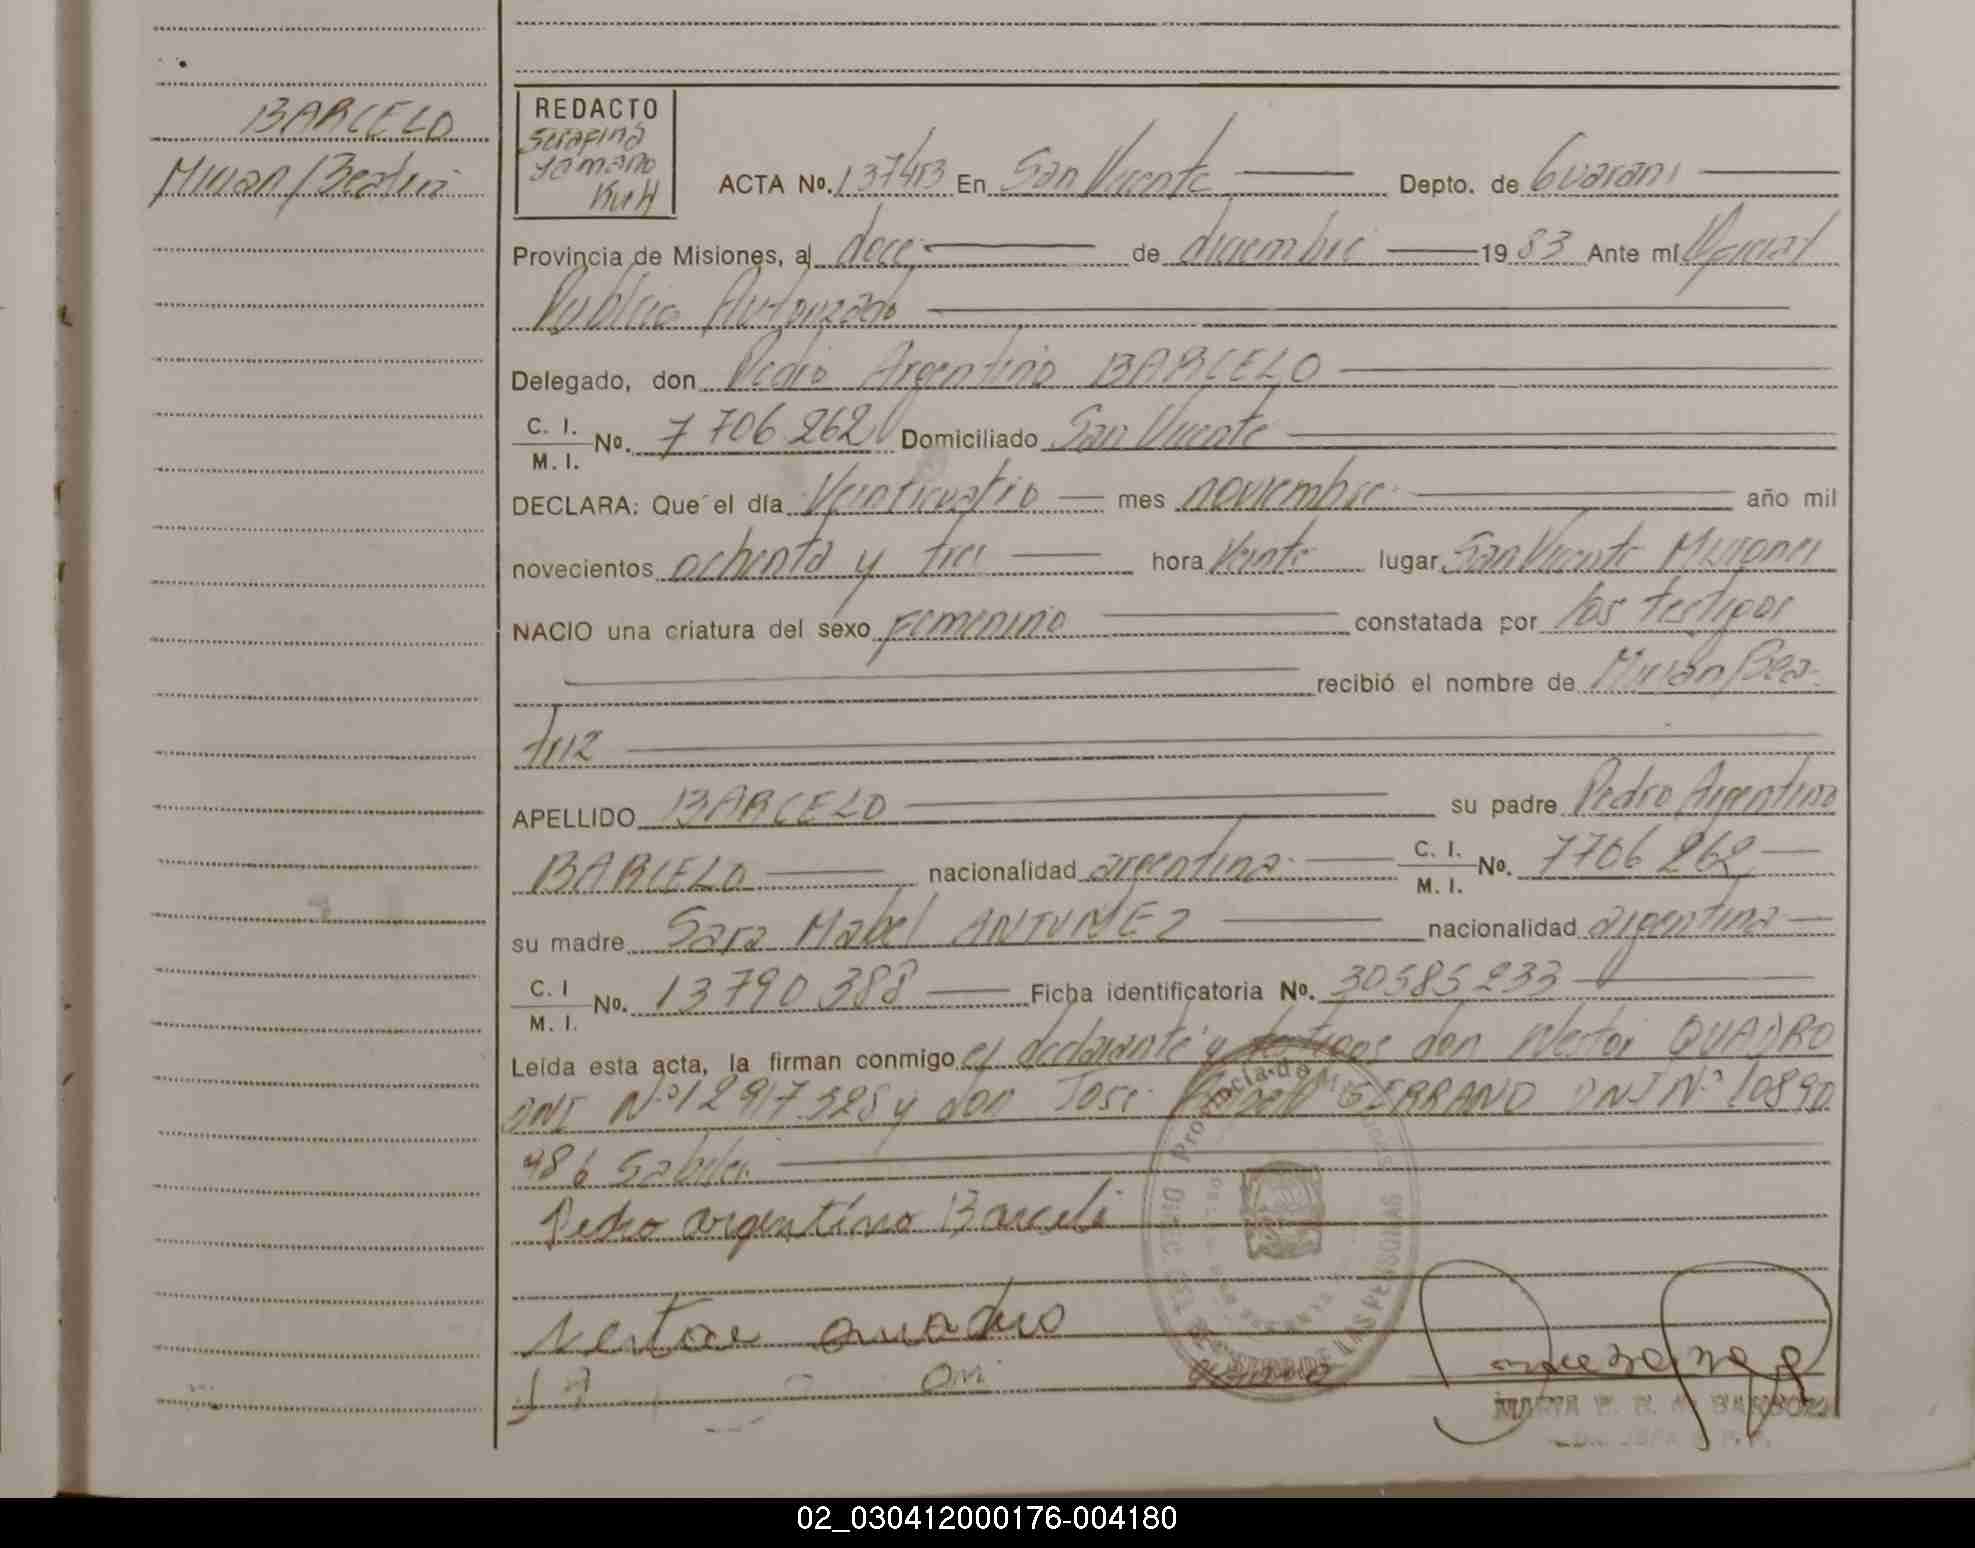 BARCELO
Mirian Beatriz
REDACTO
Serafina
Kuh
ACTA No. En San Vicente Depto. de Guarani
Provincia de Misiones, al doce de diciembre 1983 Ante mi Oficial
Publico Autorizado
Delegado, don Pedro Argentino BARCELO
C. I.
M. I. No. 7 706 262 Domiciliado San Vicente
DECLARA: Que el día Veinticuatro mes noviembre año mil
novecientos ochenta y tres hora Veinte lugar San Vicente Misiones
NACIO una criatura del sexo Femenino constatada por los testigos
recibió el nombre de Mirian Bea-
triz
APELLIDO BARCELO su padre Pedro Argentino
BARCELO nacionalidad argentina C. I.
M. I. No. 7706 262
su madre Sara Mabel ANTUNEZ nacionalidad argentina
C. I
M. I. No. 13790 388 Ficha identificatoria No. 30585233
Leída esta acta, la firman conmigo el declarante y testigos don Nestor QUADRO
DNI Nº y don Jose SERRANO DNI Nº 10890
986
Pedro argentino Barcelo
Provincia de Misiones
DE LAS PERSONAS
Nestor Quadro
MARTA
02_030412000176-004180